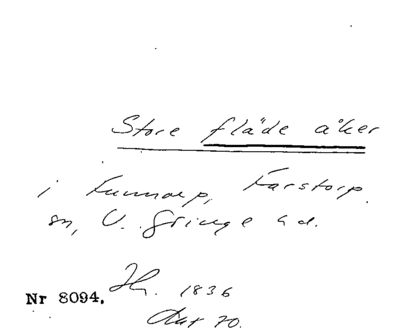 Store fläde åker
i Funnarp, Farstorp
sn, V. Göinge hd.
Nr 8094. Hr. 1836
Akt 70.